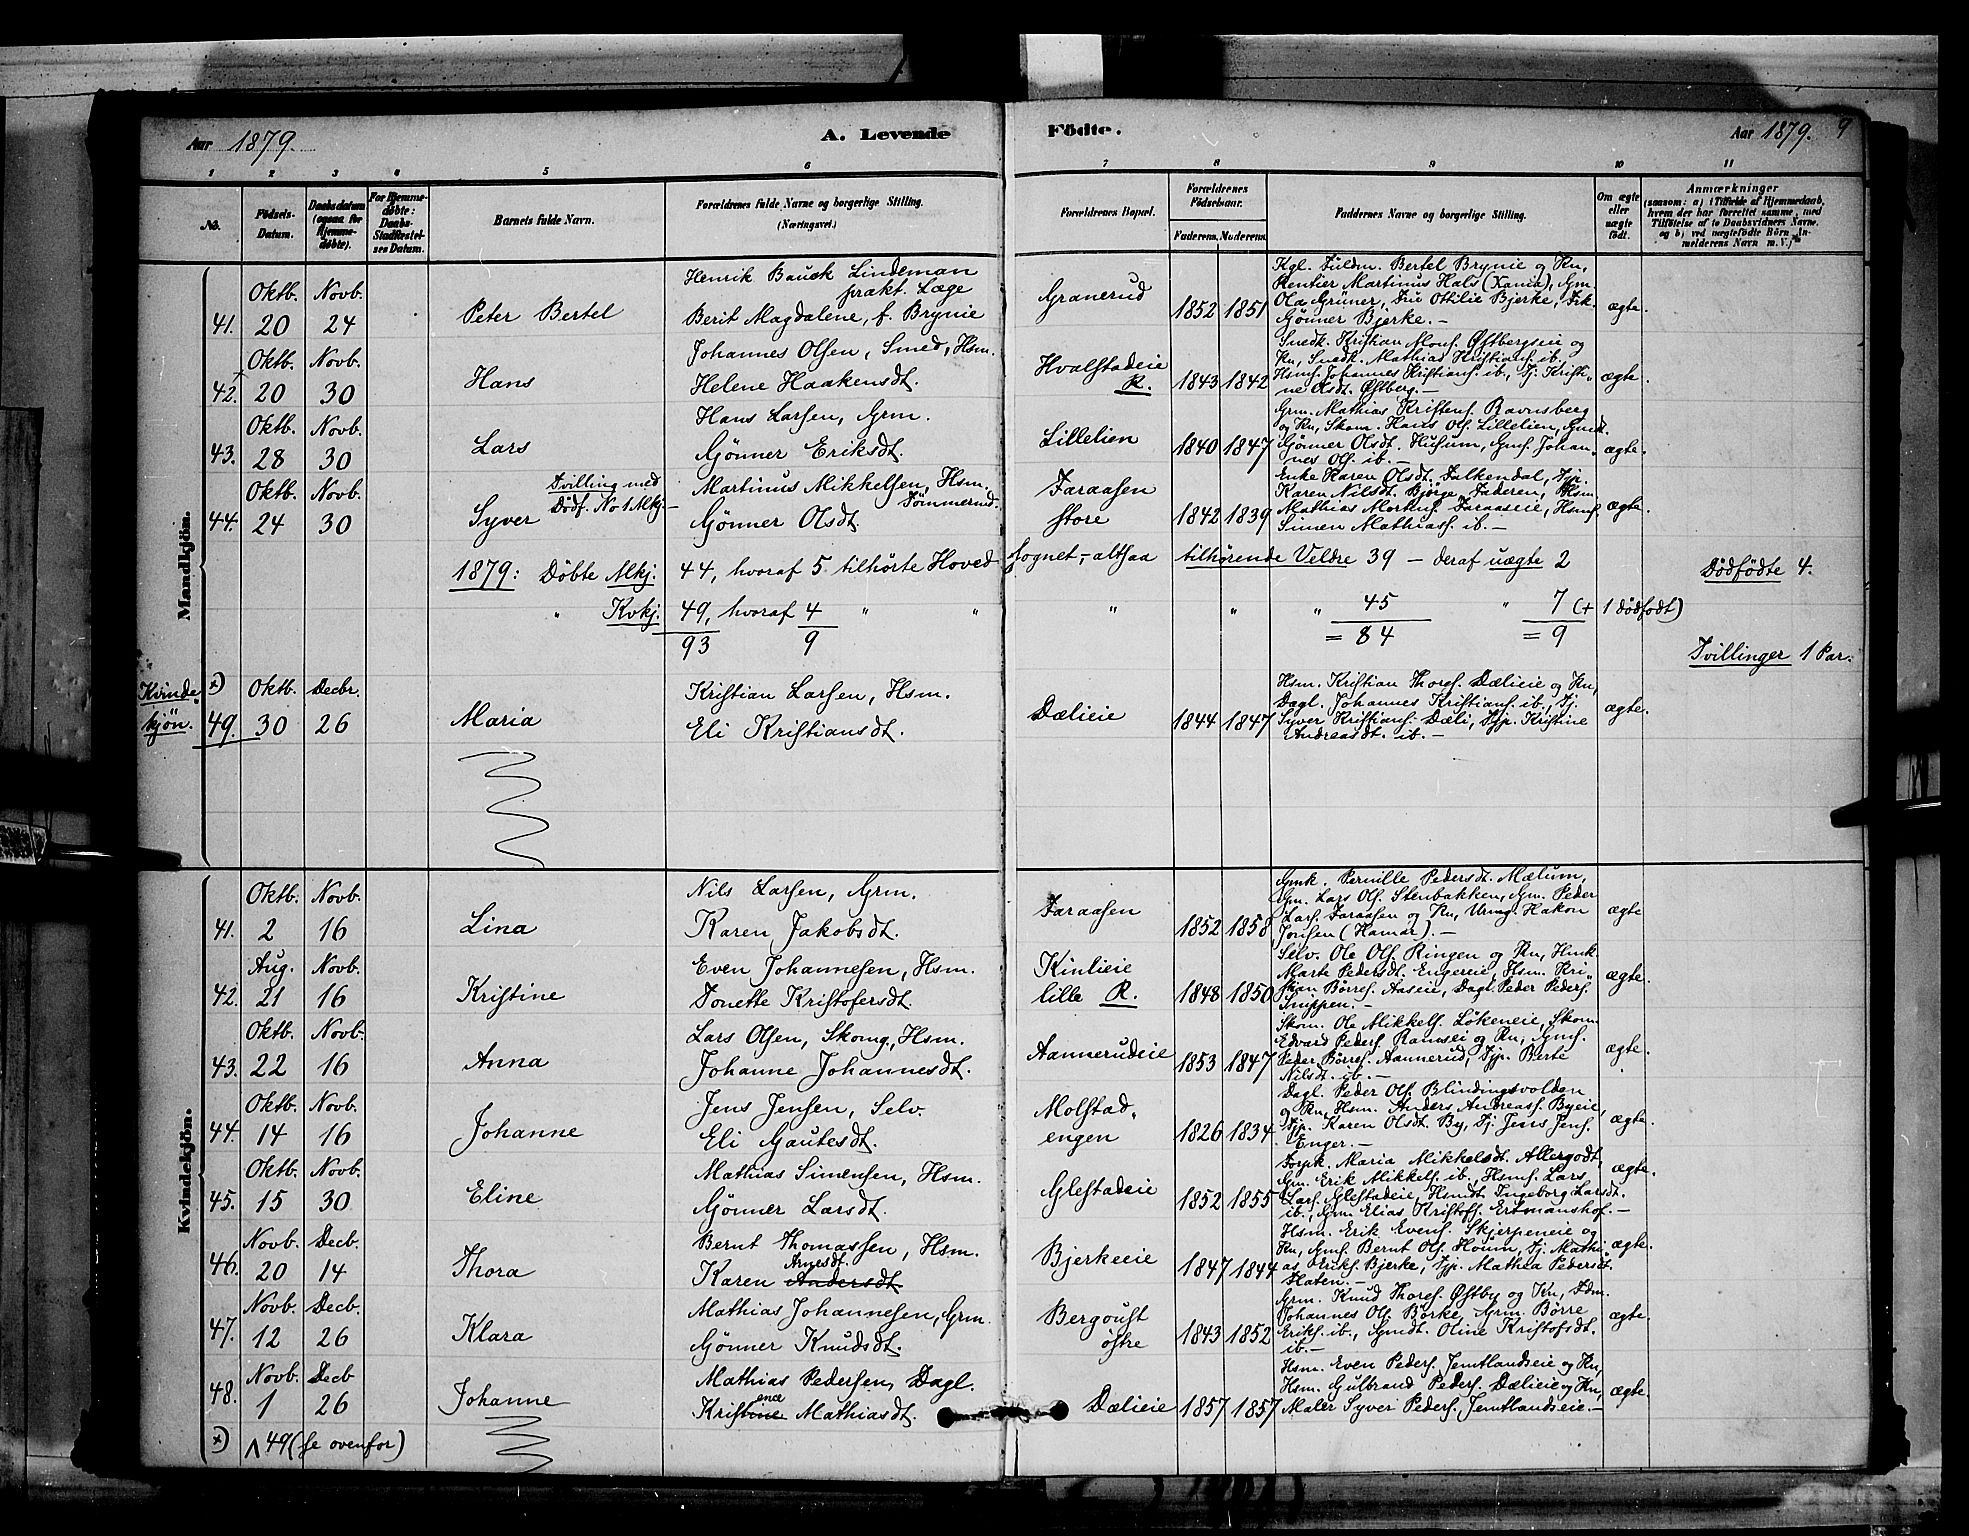 Aar 1879. A. Levende Födte. Aar 1879. 9
1 2 3 4 5 6 7 8 9 10 11
No. Födsels-Datum. Daabsdatum (ogsaa for Hjemmedöbte). For Hjemmedöbte: Daabs-Stadfæstelses Datum. Barnets fulde Navn. Forældrenes fulde Navne og borgerlige Stilling. (Næringsvei.) Forældrenes Bopæl. Forældrenes Födselsaar. Faderens. Moderens. Faddernes Navne og borgerlige Stilling. Om ægte eller uægte födt. Anmærkninger (saasom: a) i Tilfælde af Hjemmedaab, hvem der har forrettet samme, med Tilföielse af to Daabsvidners Navne, og b) ved uægtefödte Börn Anmelderens Navn m. V.)
Mandkjön.
41. Oktb. 20 Novb. 24 Peter Bertel
Henrik Bausk Lindeman
prakt. Læge
Berit Magdalene, f. Brynie
Granerud 1852 1851
Kgl. Fuldm. Bertel Brynie og Kn,
Rentier Martinus Hals (Kania), Gm.
Ola Grüner, Fru Ottilie Bjerke, Frk.
Gönner Bjerke. –
ægte.
42. Oktb. 20 Novb. 30 Hans
Johannes Olsen, Smed, Hsm.
Helene Haakensdt.
Hvalstadeie R. 1843 1842
Snedk. Kristian Mons. Östbergseie og
Kn, Snedk. Mathias Kristians. ib.,
Hsms. Johannes Kristians. ib., Pj. Kristi-
ne Olsdt. Östberg. –
ægte.
43. Oktb. 28 Novb. 30 Lars
Hans Larsen, Grm.
Gönner Eriksdt.
Lillelien 1840 1847
Grm. Mathias Kristens. Ravnsberg
og Kn, Skom. Hans Ols. Lillelien, Gmdt.
Gönner Olsdt. Husum, Gms. Johan-
nes Ols. ib. –
ægte.
44. Oktb. 24 Novb. 30 Syver
Tvilling med
Dödf. No 1 Mkj. –
Martinus Mikkelsen, Hsm.
Tömmerud.
Gönner Olsdt.
Faraasen store 1842 1839
Enke Karen Olsdt. Falkendal, Pjp.
Karen Nilsdt. Björge, Faderen, Hsm.
Mathias Mortens. Faraaseie, Hsms.
Simen Mathiass. ib. –
ægte.
1879: Döbte Mkj. 44, hvoraf 5 tilhörte Hoved-sognet, – altsaa tilhörende Veldre 39 – deraf uægte 2 Dödfödte 4.
" Kvkj. 49, hvoraf 4 " " " " " 45 " 7 (+ 1 dödfödt)
93 9 = 84 = 9
Tvillinger 1 Par.
Kvinde
kjön.
×)
49. Oktb. 30 Decbr. 26 Maria
Kristian Larsen, Hsm.
Eli Kristiansdt.
Dælieie 1844 1847
Hsm. Kristian Thores. Dælieie og Kn,
Dagl. Johannes Kristians. ib., Pj.
Syver Kristians. Dæli, Pjp. Kristine
Andreasdt. ib. –
ægte.
Kvindekjön.
41. Oktb. 2 Novb. 16 Lina
Nils Larsen, Grm.
Karen Jakobsdt.
Faraasen 1852 1858
Gmk. Pernille Pedersdt. Mælum,
Gm. Lars Ols. Stenbakken, Gm. Peder
Lars. Faraasen og Kn, Urmg. Hakon
Jonsen (Hamar). –
ægte
42. Aug. 21 Novb. 16 Kristine
Even Johannesen, Hsm.
Tonette Kristofersdt.
Kinlieie lille R. 1848 1850
Selv. Ole Ols. Ringen og Kn, Hmk.
Marte Pedersdt. Engereie, Hsm. Kri-
stian Börres. Aaseie, Dagl. Peder Peders.
Snippen. –
ægte.
43. Oktb. 22 Novb. 16 Anna
Lars Olsen, Skomg., Hsm.
Johanne Johannesdt.
Aannerudeie 1853 1847
Skom. Ole Mikkels. Lökeneie, Skom.
Edvard Peders. Ramsei og Kn, Gms.
Peder Börres. Aannerud, Pjp. Berte
Nilsdt. ib. –
ægte.
44. Oktb. 14 Novb. 16 Johanne
Jens Jensen, Selv.
Eli Gautesdt.
Molstad-
engen 1826 1834
Dagl. Peder Ols. Blindingsvolden
og Kn, Hsm. Anders Andreass. Byeie,
Pjp. Karen Olsdt. By, Pj. Jens Jens.
Enger. –
ægte.
45. Oktb. 15 Novb. 30 Eline
Mathias Simensen, Hsm.
Gönner Larsdt.
Glestadeie 1852 1855
Forpk. Maria Mikkelsdt. Allergodt,
Gm. Erik Mikkels. ib., Hsms. Lars
Lars. Glestadeie, Hsmdt. Ingeborg Larsdt.
ib., Grm. Elias Kristoff. Ertmanshof. –
ægte.
46. Novb. 20 Decb. 14 Thora
Bernt Thomassen, Hsm.
Arnesdt.
Karen Andersdt.
Bjerkeeie 1847 1844
Hsm. Erik Evens. Skjerpeneie og
Kn, Gms. Bernt Ols. Houm, Pj. Mathi-
as Eriks. Bjerke, Pjp. Mathea Pedersdt.
Flaten. –
ægte.
47. Novb. 12 Decb. 26 Klara
Mathias Johannesen, Grm.
Gönner Knudsdt.
Bergoust östre 1843 1852
Grm. Knud Thores. Östby og Kn, Fdm.
Johannes Ols. Börke, Grm. Börre
Eriks. ib., Gmdt. Oline Kristofsdt.
ib. –
ægte.
48. Novb. 1 Decb 26 Johanne
Mathias Pedersen, Dagl.
ence
Kristine Mathiasdt.
Dælieie 1857 1857
Hsm. Even Peders. Jemtlandseie og Kn,
Hsm. Gulbrand Peders. Dælieie og Kn,
Maler Syver Peders. Jemtlandseie. –
ægte.
×) ∧ 49 (se ovenfor)